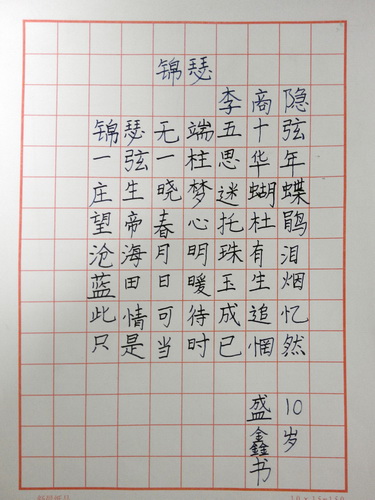 锦瑟
李商隐
锦瑟无端五十弦
一弦一柱思华年
庄生晓梦迷蝴蝶
望帝春心托杜鹃
沧海月明珠有泪
蓝田日暖玉生烟
此情可待成追忆
只是当时已惘然
10岁
盛鑫书